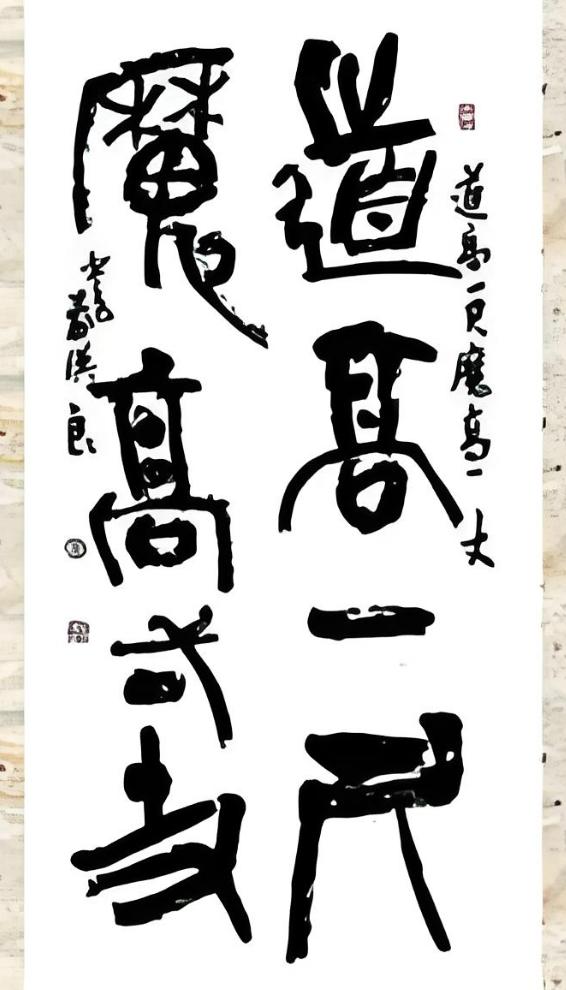 道高一尺魔高一丈
道高一尺
魔高弌丈
洪良